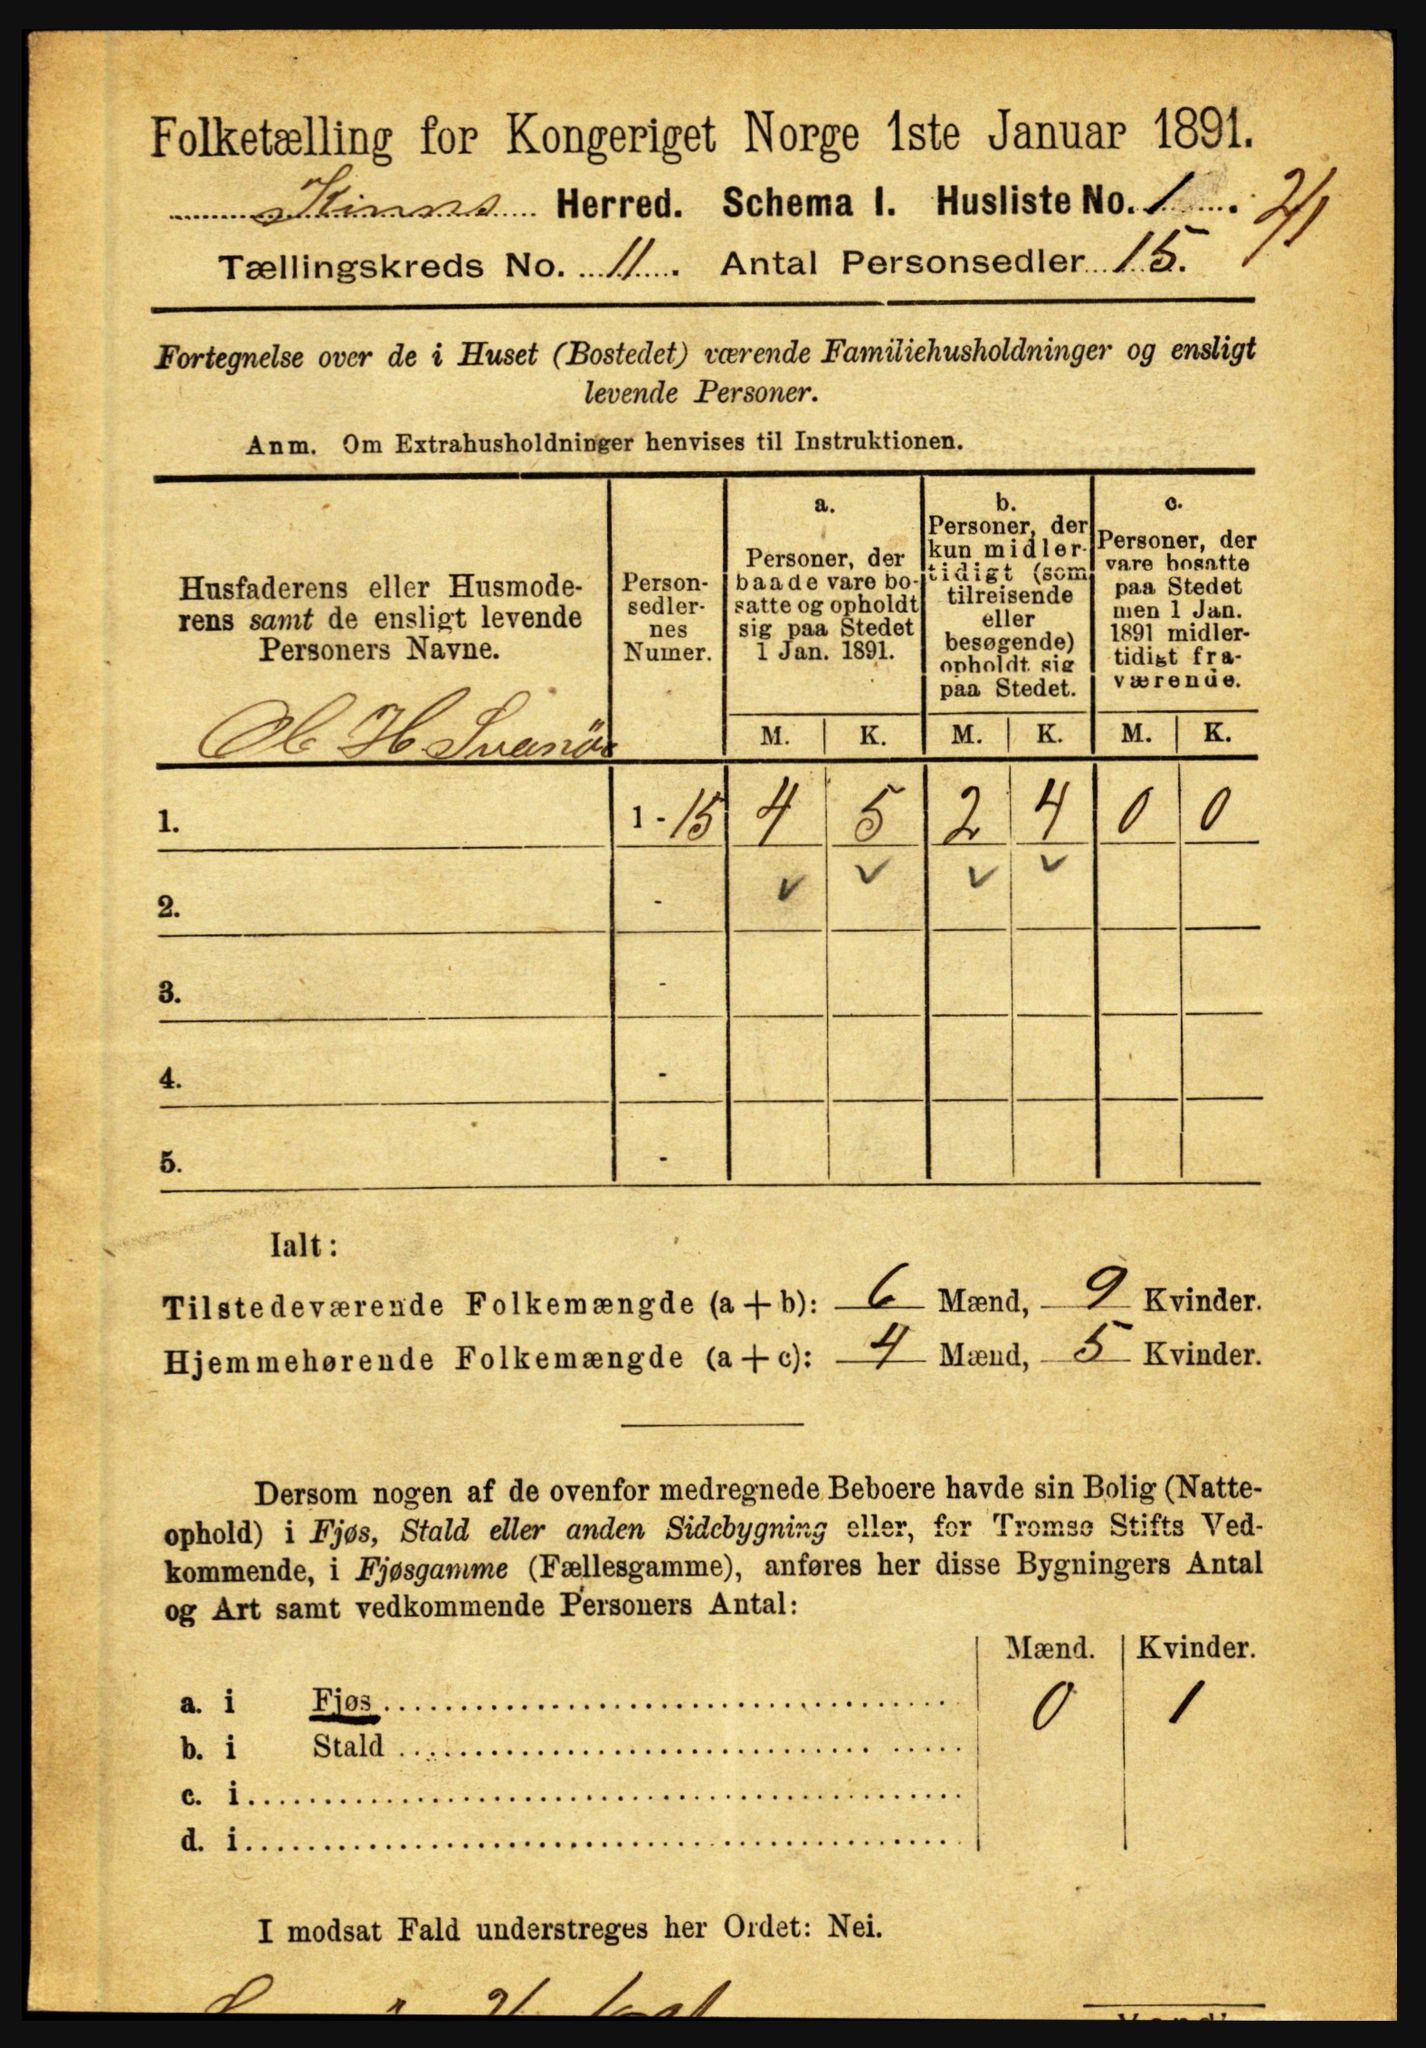 Folketælling for Kongeriget Norge 1ste Januar 1891.
Kinns Herred. Schema I. Husliste No. 1.
Tællingskreds No. 11. Antal Personsedler 15.
Fortegnelse over de i Huset (Bostedet) værende Familiehusholdninger og ensligt
levende Personer.
Anm. Om Extrahusholdninger henvises til Instruktionen.
Husfaderens eller Husmode-
rens samt de ensligt levende
Personers Navne.
H Svanöe
Person-
sedler-
nes
Numer.
a.
Personer, der
baade vare bo-
satte og opholdt
sig paa Stedet
1 Jan. 1891.
b.
Personer, der
kun midler-
tidigt (som
tilreisende
eller
besøgende)
opholdt sig
paa Stedet.
c.
Personer, der
vare bosatte
paa Stedet
men 1 Jan.
1891 midler-
tidigt fra-
værende.
M. K. M. K. M. K.
1. 1 - 15 4 5 2 4 0 0
2. -
3. -
4. -
5. -
Ialt:
Tilstedeværende Folkemængde (a + b): 6 Mænd, 9 Kvinder.
Hjemmehørende Folkemængde (a + c): 4 Mænd, 5 Kvinder.
Dersom nogen af de ovenfor medregnede Beboere havde sin Bolig (Natte-
ophold) i Fjøs, Stald eller anden Sidebygning eller, for Tromsø Stifts Ved-
kommende, i Fjøsgamme (Fællesgamme), anføres her disse Bygningers Antal
og Art samt vedkommende Personers Antal:
Mænd. Kvinder.
a. i Fjøs 0 1
b. i Stald
c. i
d. i
I modsat Fald understreges her Ordet: Nei.